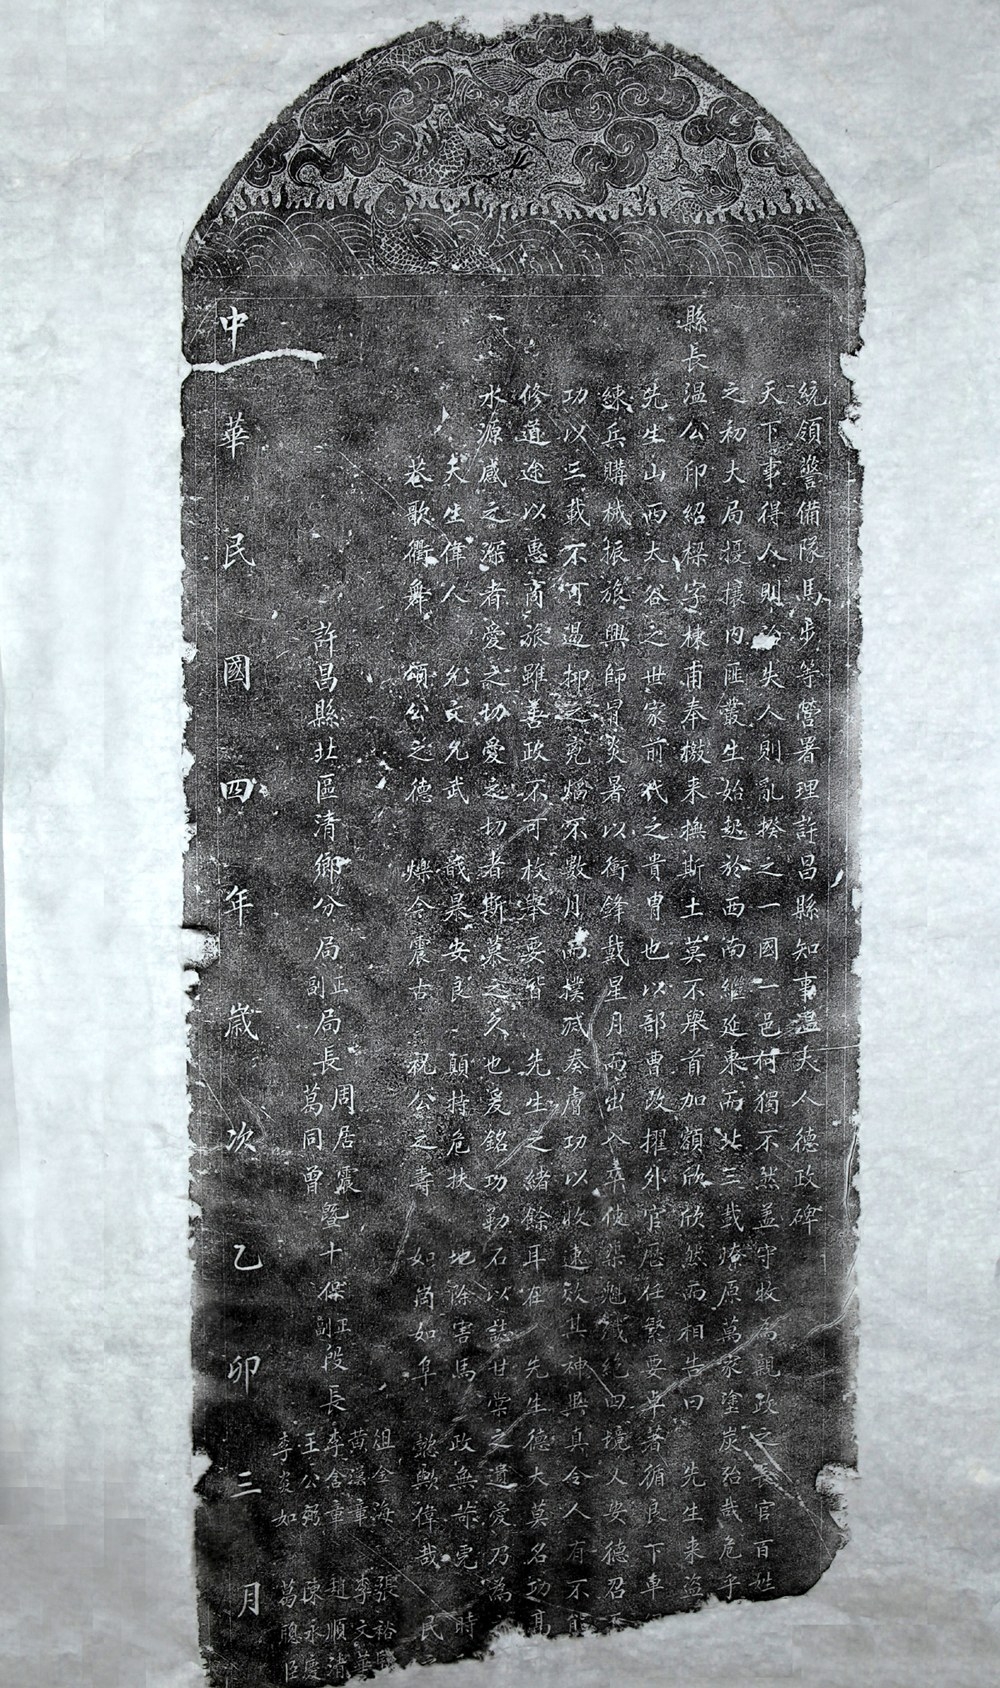 統領警備隊馬步等營署理許昌縣知事溫大人德政碑
天下事得人則治失人則亂揆之一國一邑何獨不然蓋守牧為親政之長官百姓
之初大局擾攘內匪叢生始起於西南繼延東而北三載燎原萬家塗炭殆哉危乎
縣長溫公印紹樑字棟甫奉檄来撫斯土莫不舉首加額欣欣然而相告曰先生来盜
先生山西太谷之世家前代之貴冑也以部曹改擢外官歷任繁要卓著循良下車
練兵購械振旅興師冒炎暑以衝鋒戴星月而出入卒使渠魁殘絕四境人安德召
功以三載不可遏抑之兇燄不數月而撲滅奏膚功以收速效其神與真令人有不能
修道途以惠商旅雖善政不可枚舉要皆先生之緒餘耳在先生德大莫名功高
水源感之深者愛之切愛之切者斯慕之久也爰銘功勒石以誌甘棠之遺愛乃為
天生偉人 允文允武 戢暴安良 顛持危扶 地除害馬 政無苛虎 時
巷歌衢舞 頌公之德 爍今震古 祝公之壽 如崗如阜 懿歟偉哉 民
許昌縣北區清鄉分局正副局長周居震萬同曾暨十保正副段長
俎金海 張裕
黃藻章 李文華
李含章 趙順清
王公弼 陳永慶
李炎如 萬聰臣
中華民國四年歲次乙卯三月